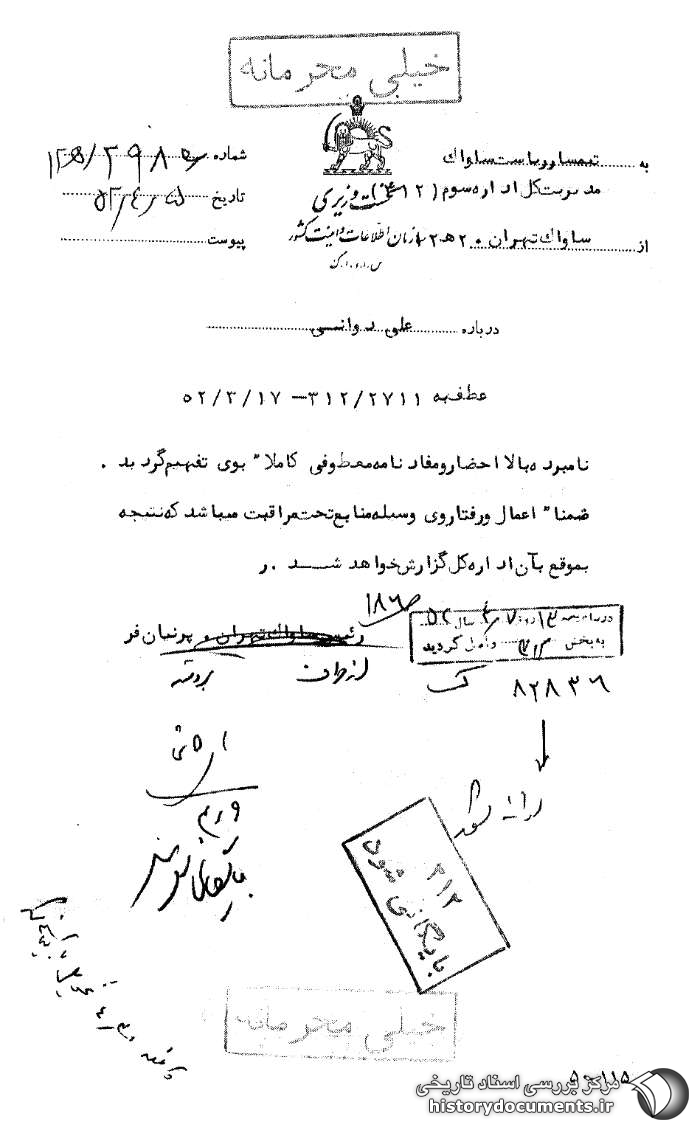 خیلی محرمانه
به تیمسار ریاست ساواک
شماره
مدیریت کل اداره سوم (۳۱۲)
نخست وزیری
تاریخ ۵۲/۴/۵
از ساواک تهران ۲۰ ه ۱۲
سازمان اطلاعات و امنیت کشور
پیوست
س.ا.و.ا.ک
درباره علی دوانی
عطف به ۳۱۲/۲۷۱۱ – ۵۲/۳/۱۷
نامبرده بالا احضار و مفاد نامه معطوفی کاملا" بوی تفهیم گردید .
ضمنا" اعمال و رفتار وی وسیله منابع تحت مراقبت میباشد که نتیجه
بموقع بآن اداره کل گزارش خواهد شد . ر
رئیس ساواک تهران . پرنیان فر
به بخش ۳۱۲ واصل گردید
۸۲۸۳۶
ارائه شود
۳۱۲
بایگانی شود
بایگانی شود
خیلی محرمانه
مرکز بررسی اسناد تاریخی
historydocuments.ir